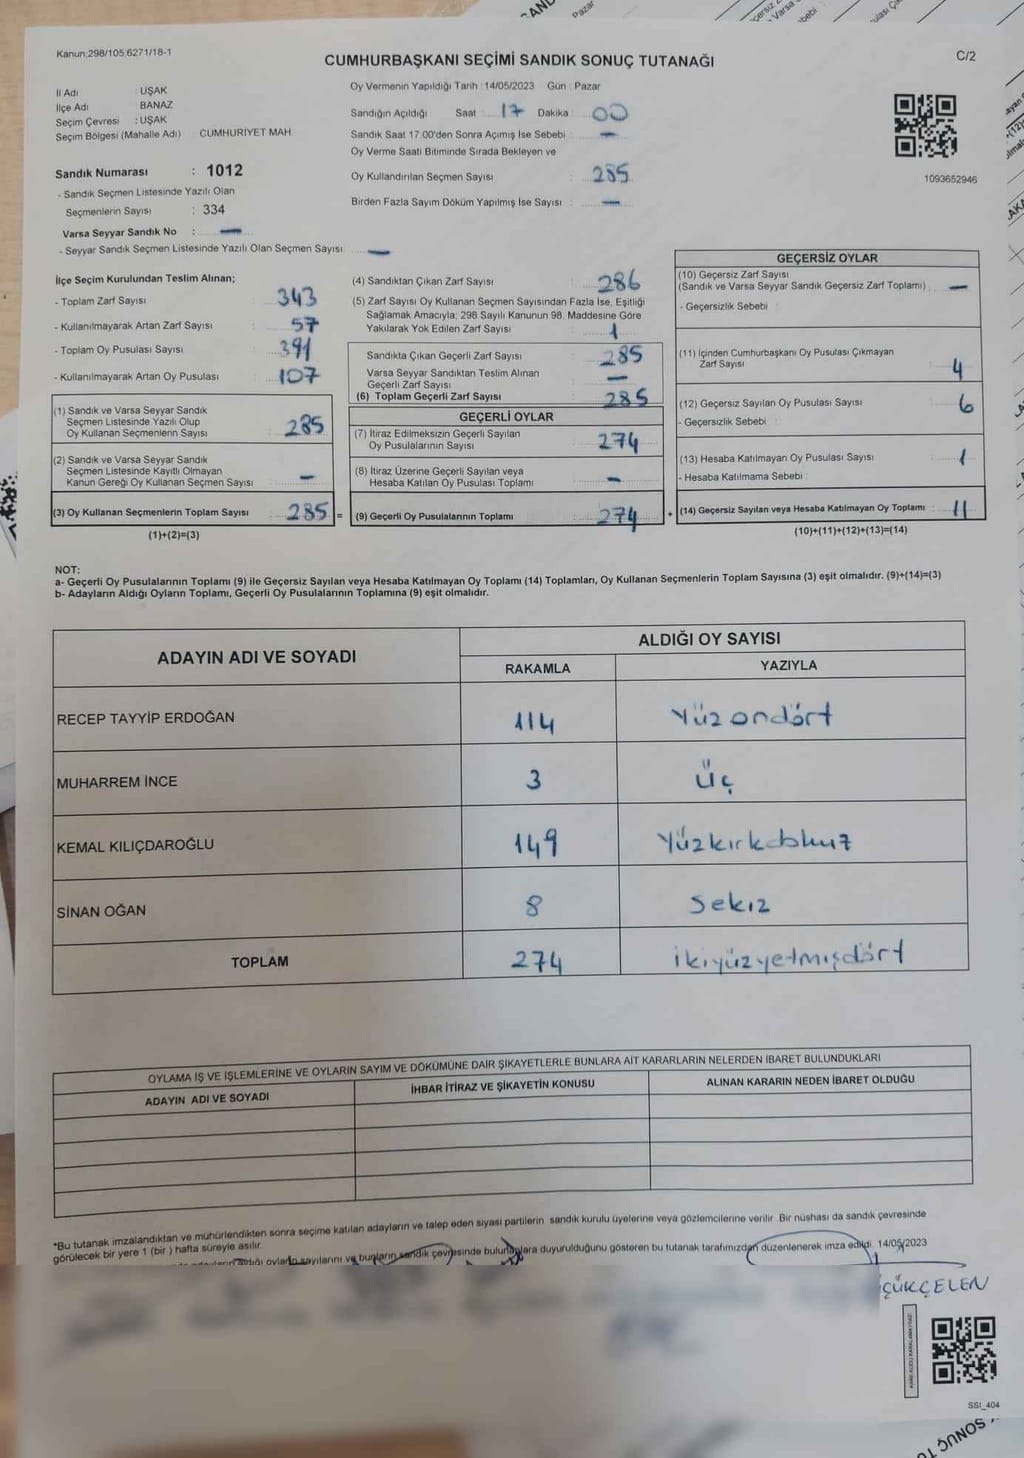 Kanun;298/105;6271/18-1
CUMHURBAŞKANI SEÇİMİ SANDIK SONUÇ TUTANAĞI
C/2
İl Adı : UŞAK
İlçe Adı : BANAZ
Seçim Çevresi : UŞAK
Seçim Bölgesi (Mahalle Adı) CUMHURİYET MAH.
Sandık Numarası : 1012
- Sandık Seçmen Listesinde Yazılı Olan
Seçmenlerin Sayısı : 334
Varsa Seyyar Sandık No : —
- Seyyar Sandık Seçmen Listesinde Yazılı Olan Seçmen Sayısı: —
Oy Vermenin Yapıldığı Tarih : 14/05/2023 Gün : Pazar
Sandığın Açıldığı Saat : 17 Dakika : 00
Sandık Saat 17:00'den Sonra Açımış İse Sebebi : —
Oy Verme Saati Bitiminde Sırada Bekleyen ve
Oy Kullandırılan Seçmen Sayısı : 285
Birden Fazla Sayım Döküm Yapılmış İse Sayısı : —
1093652946
İlçe Seçim Kurulundan Teslim Alınan;
- Toplam Zarf Sayısı : 343
- Kullanılmayarak Artan Zarf Sayısı : 57
- Toplam Oy Pusulası Sayısı : 391
- Kullanılmayarak Artan Oy Pusulası : 107
(1) Sandık ve Varsa Seyyar Sandık
Seçmen Listesinde Yazılı Olup
Oy Kullanan Seçmenlerin Sayısı : 285
(2) Sandık ve Varsa Seyyar Sandık
Seçmen Listesinde Kayıtlı Olmayan
Kanun Gereği Oy Kullanan Seçmen Sayısı : —
(3) Oy Kullanan Seçmenlerin Toplam Sayısı : 285 =
(1)+(2)=(3)
(4) Sandıktan Çıkan Zarf Sayısı : 286
(5) Zarf Sayısı Oy Kullanan Seçmen Sayısından Fazla İse, Eşitliği
Sağlamak Amacıyla; 298 Sayılı Kanunun 98. Maddesine Göre
Yakılarak Yok Edilen Zarf Sayısı : 1
Sandıkta Çıkan Geçerli Zarf Sayısı : 285
Varsa Seyyar Sandıktan Teslim Alınan
Geçerli Zarf Sayısı : —
(6) Toplam Geçerli Zarf Sayısı : 285
GEÇERLİ OYLAR
(7) İtiraz Edilmeksizin Geçerli Sayılan
Oy Pusulalarının Sayısı : 274
(8) İtiraz Üzerine Geçerli Sayılan veya
Hesaba Katılan Oy Pusulası Toplamı : —
(9) Geçerli Oy Pusulalarının Toplamı : 274 +
GEÇERSİZ OYLAR
(10) Geçersiz Zarf Sayısı
(Sandık ve Varsa Seyyar Sandık Geçersiz Zarf Toplamı) : —
- Geçersizlik Sebebi :
(11) İçinden Cumhurbaşkanı Oy Pusulası Çıkmayan
Zarf Sayısı : 4
(12) Geçersiz Sayılan Oy Pusulası Sayısı : 6
- Geçersizlik Sebebi :
(13) Hesaba Katılmayan Oy Pusulası Sayısı : 1
- Hesaba Katılmama Sebebi :
(14) Geçersiz Sayılan veya Hesaba Katılmayan Oy Toplamı : 11
(10)+(11)+(12)+(13)=(14)
NOT:
a- Geçerli Oy Pusulalarının Toplamı (9) ile Geçersiz Sayılan veya Hesaba Katılmayan Oy Toplamı (14) Toplamları, Oy Kullanan Seçmenlerin Toplam Sayısına (3) eşit olmalıdır. (9)+(14)=(3)
b- Adayların Aldığı Oyların Toplamı, Geçerli Oy Pusulalarının Toplamına (9) eşit olmalıdır.
ADAYIN ADI VE SOYADI
ALDIĞI OY SAYISI
RAKAMLA YAZIYLA
RECEP TAYYİP ERDOĞAN 114 Yüzondört
MUHARREM İNCE 3 Üç
KEMAL KILIÇDAROĞLU 149 Yüzkırkdokuz
SİNAN OĞAN 8 Sekiz
TOPLAM 274 ikiyüzyetmişdört
OYLAMA İŞ VE İŞLEMLERİNE VE OYLARIN SAYIM VE DÖKÜMÜNE DAİR ŞİKAYETLERLE BUNLARA AİT KARARLARIN NELERDEN İBARET BULUNDUKLARI
ADAYIN ADI VE SOYADI İHBAR İTİRAZ VE ŞİKAYETİN KONUSU ALINAN KARARIN NEDEN İBARET OLDUĞU
*Bu tutanak imzalandıktan ve mühürlendikten sonra seçime katılan adayların ve talep eden siyasi partilerin sandık kurulu üyelerine veya gözlemcilerine verilir. Bir nüshası da sandık çevresinde
görülecek bir yere 1 (bir ) hafta süreyle asılır.
aldığı oyların sayılarını ve bunların sandık çevresinde bulunanlara duyurulduğunu gösteren bu tutanak tarafımızdan düzenlenerek imza edildi. 14/05/2023
ÇÜKÇELEN
SSI_404